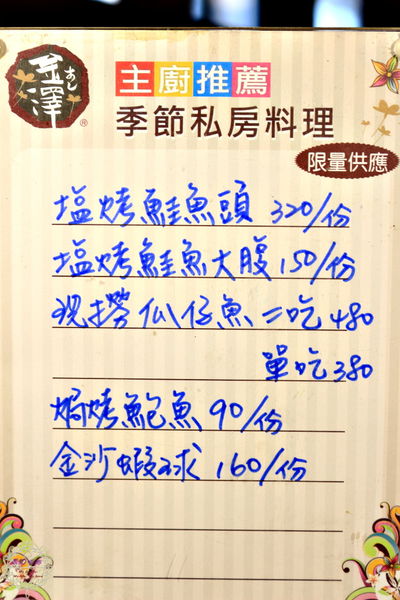 金澤
あし
®
主廚推薦
季節私房料理
限量供應
塩烤鮭魚頭 320/份
塩烤鮭魚大腹 150/份
現撈㸃仔魚 二吃 480
單吃 380
焗烤鮑魚 90/份
金沙蝦球 160/份